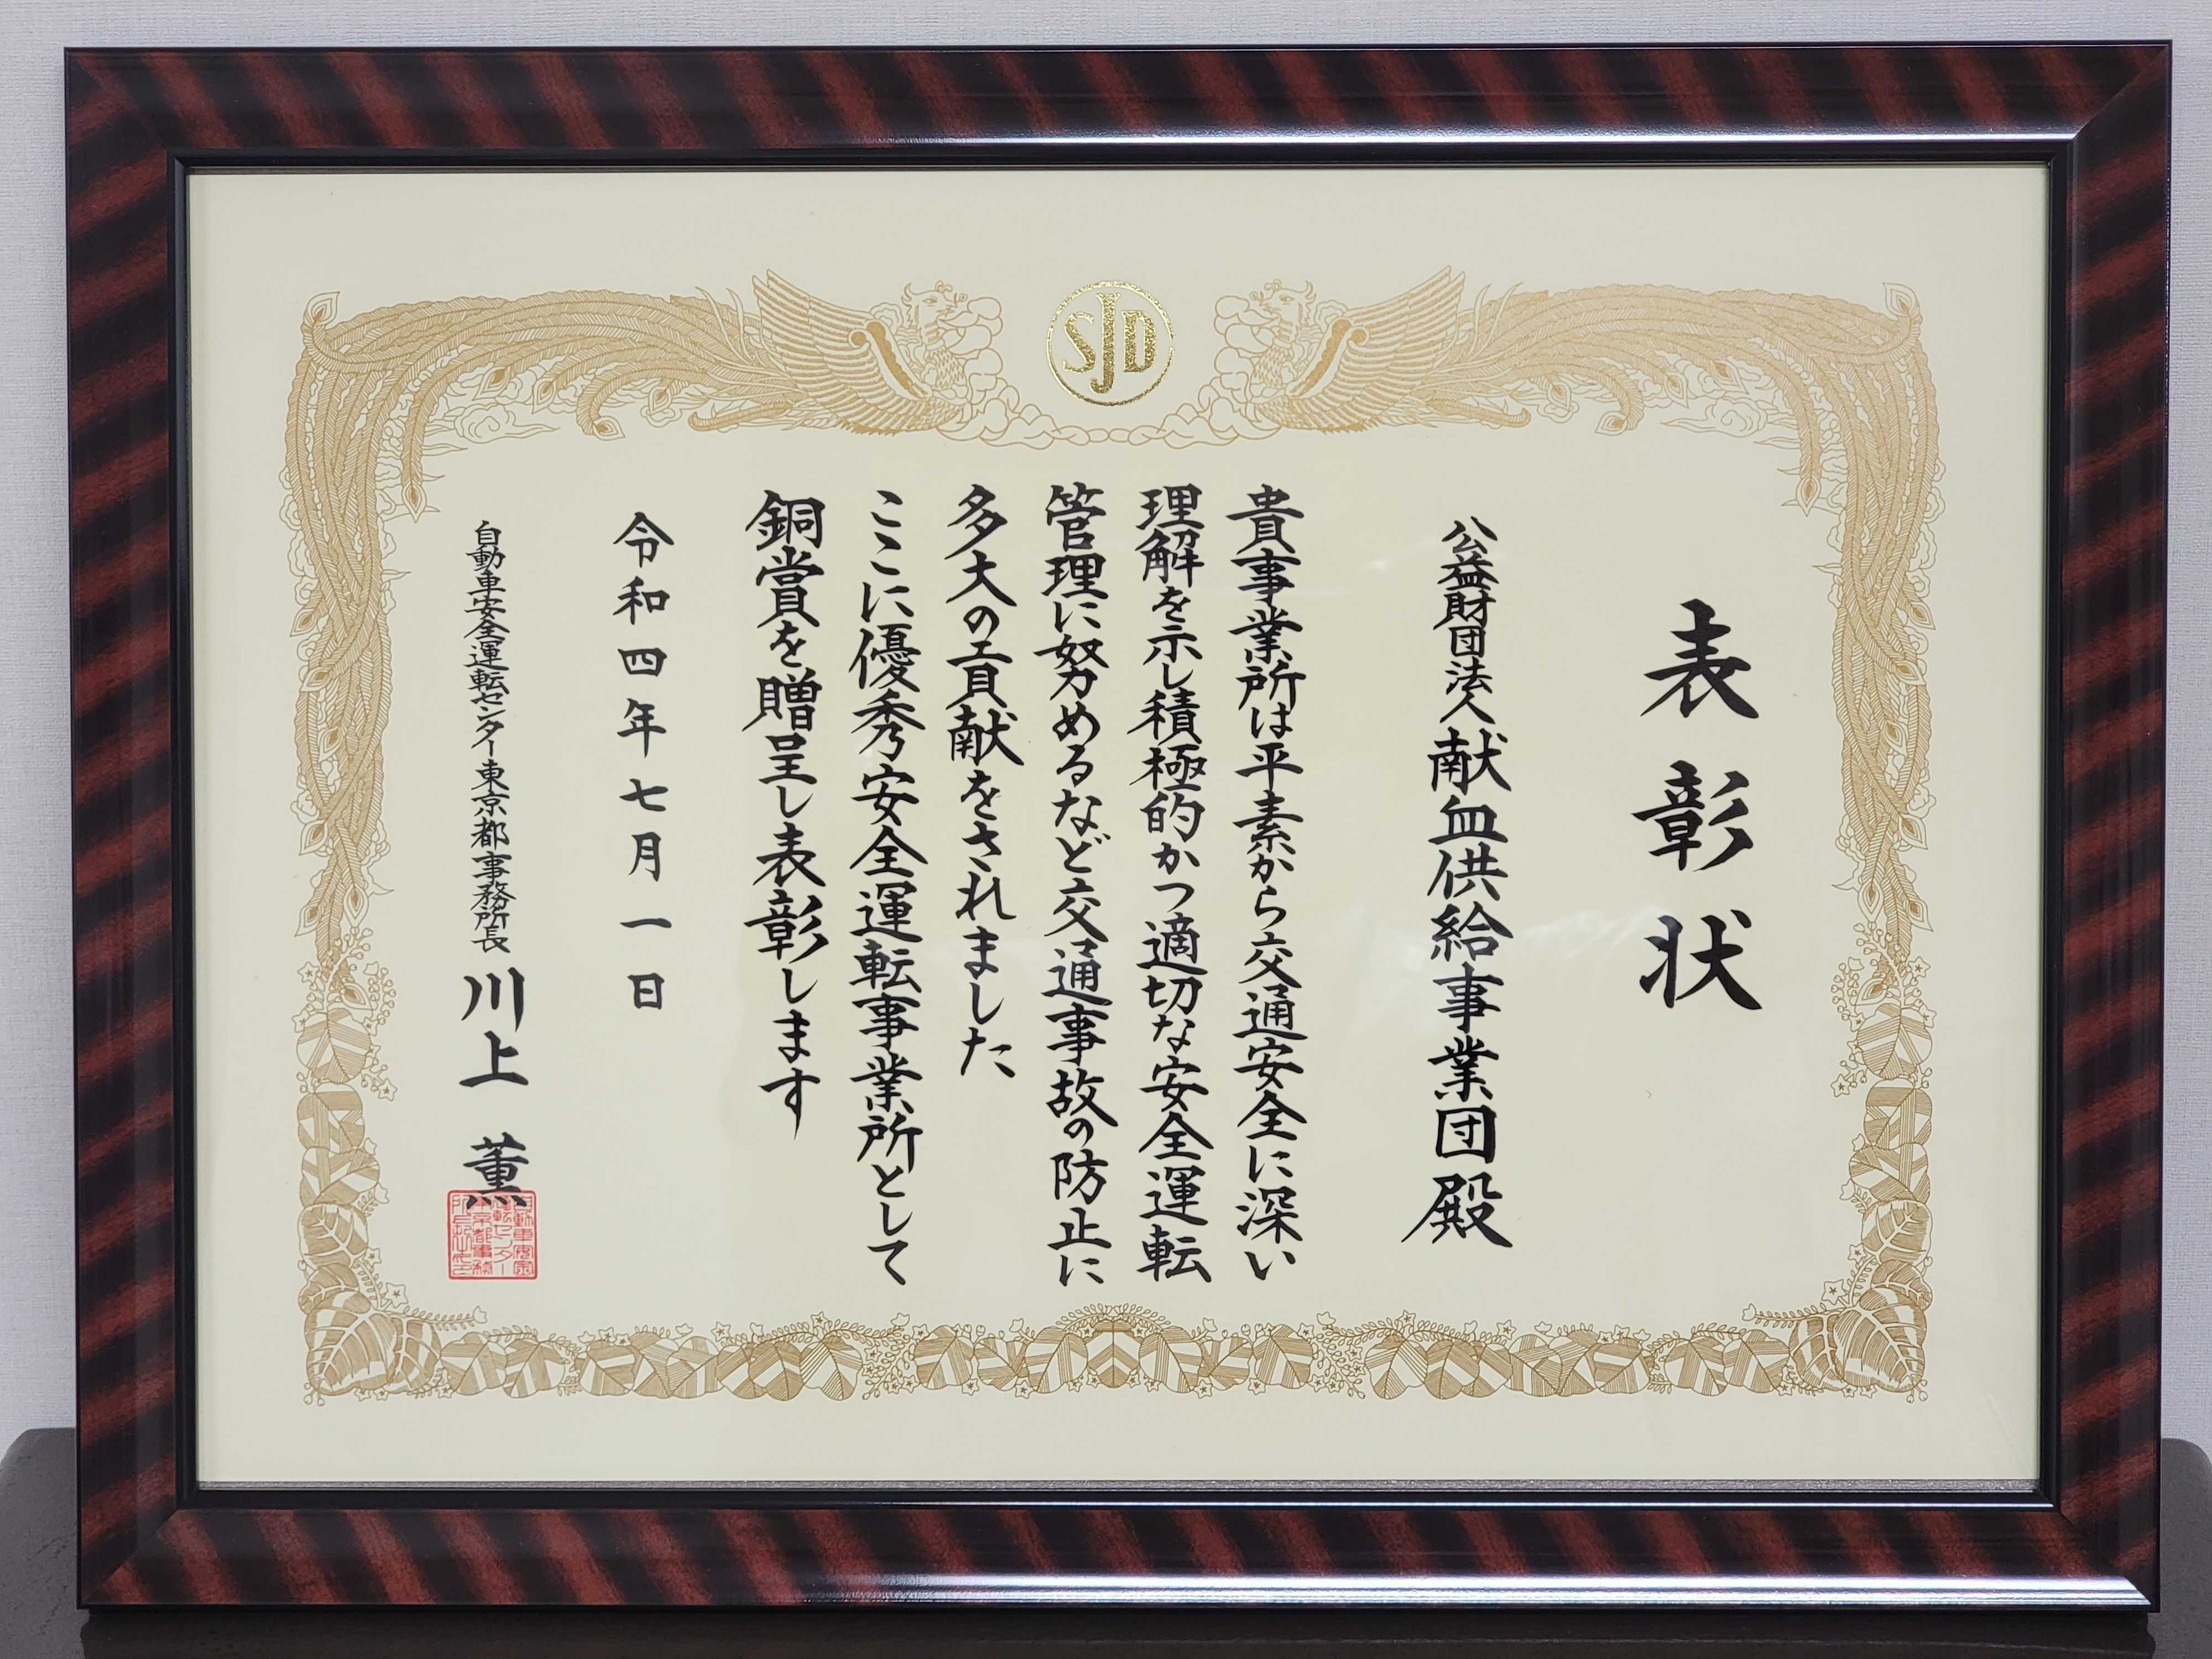 SJD
表彰状
公益財団法人献血供給事業団殿
貴事業所は平素から交通安全に深い
理解を示し積極的かつ適切な安全運転
管理に努めるなど交通事故の防止に
多大の貢献をされました
ここに優秀安全運転事業所として
銅賞を贈呈し表彰します
令和四年七月一日
自動車安全運転センター東京都事務所長 川上 薫